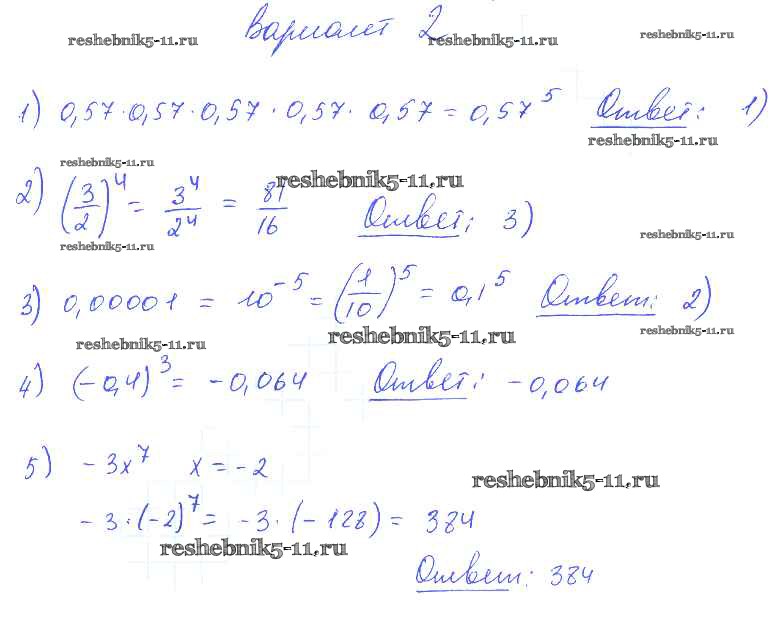 Вариант 2
reshebnik5-11.ru reshebnik5-11.ru reshebnik5-11.ru
1) 0,57·0,57·0,57·0,57·0,57 = 0,57⁵ Ответ: 1)
reshebnik5-11.ru
reshebnik5-11.ru reshebnik5-11.ru
2) (3/2)⁴ = 3⁴/2⁴ = 81/16 Ответ: 3)
reshebnik5-11.ru reshebnik5-11.ru
3) 0,00001 = 10⁻⁵ = (1/10)⁵ = 0,1⁵ Ответ: 2)
reshebnik5-11.ru reshebnik5-11.ru reshebnik5-11.ru
4) (-0,4)³ = -0,064 Ответ: -0,064
5) -3x⁷ x = -2
reshebnik5-11.ru
-3·(-2)⁷ = -3·(-128) = 384
reshebnik5-11.ru
Ответ: 384